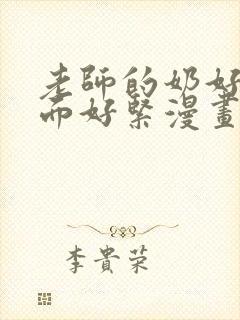 老師的奶好
而好緊漫畫
李貴荣